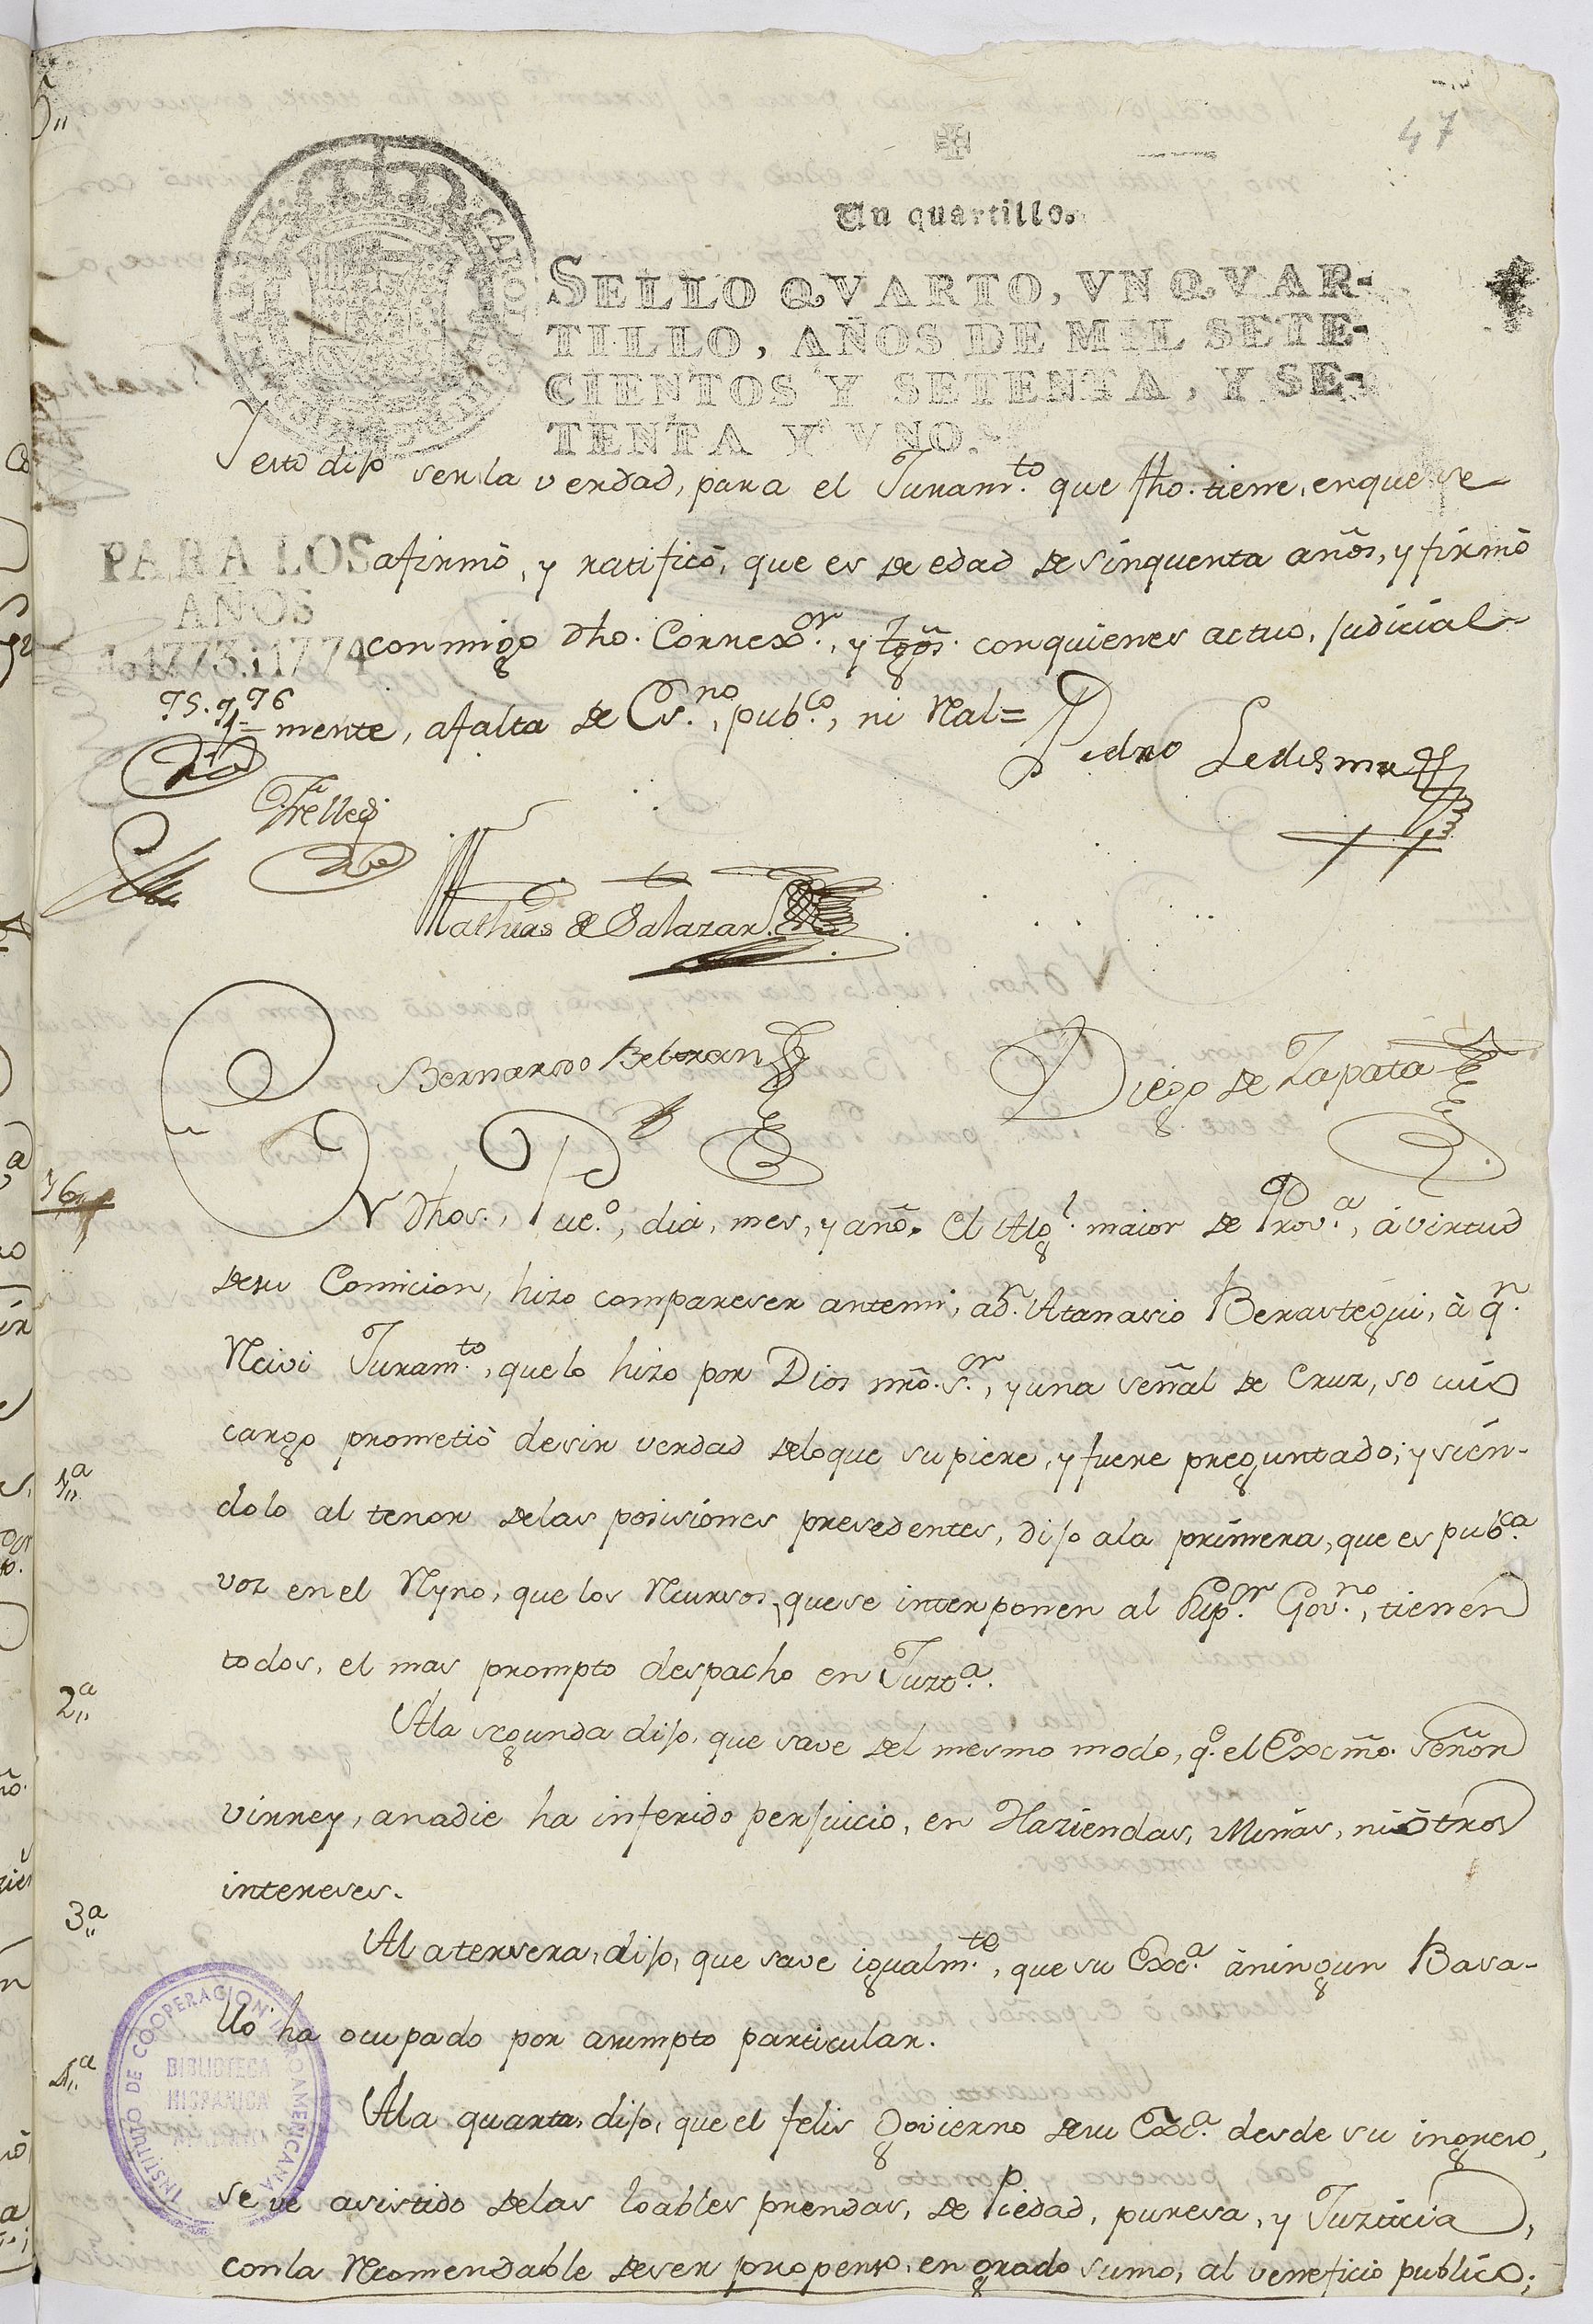 47
Un quartillo.
SELLO QVARTO, VN QVAR-
TILLO, AÑOS DE MIL SETE-
CIENTOS Y SETENTA, Y SE-
TENTA Y VNO.
Y esto dijo ser la verdad, para el Juram.to que fho. tiene, enque se
PARA LOS
AÑOS
1773. i 1774
afirmò, y ratificò, que es de edad de sinquenta años, y firmò
conmigo dho. Correxor., y tgos. conquienes actuo, judicial-
75. y 76
mente, afalta de Es.no, pub.co, ni Ral=
Pedro Ledesma
Mathias de Salazar
Bernardo Beltran
Diego de Zapata
76
En dhos., Pue.o, dia, mes, y año. El Alg.l maior de Prov.a, á virtud
desu Comicion, hizo compareser antemi, a dn. Atanasio Berastegui, à q.n
Recivi Juram.to, que lo hizo por Dios nrô. s.or, y una señal de Cruz, so cuio
cargo prometiò desir verdad delo que supiere, y fuere preguntado; y sien-
1.a
dolo al tenor delas posisiones presedentes, dijo ala primera, que es pub.ca
voz en el Reyno, que los Recursos, que se interponen al Sup.or Gov.no, tienen
todos, el mas prompto despacho en Juzt.a.
2.a
Ala segunda dijo, que save del mesmo modo, q.e el Excmô. Señor
virrey, anadie ha inferido perjuicio, en Haziendas, Minas, ni òtros
intereses.
3.a
Ala tersera, dijo, que save igualm.te, que su Exc.a àningun Basa-
llo ha ocupado por asumpto particular.
4.a
Ala quarta, dijo, que el felis Govierno desu Exc.a desde su ingreso,
se ve asistido delas loables prendas, de Piedad, puresa, y Juzticia,
conla Recomendable deser propenso, en grado sumo, al veneficio publico;
INSTITUTO DE COOPERACION IBEROAMERICANA
BIBLIOTECA
HISPANICA